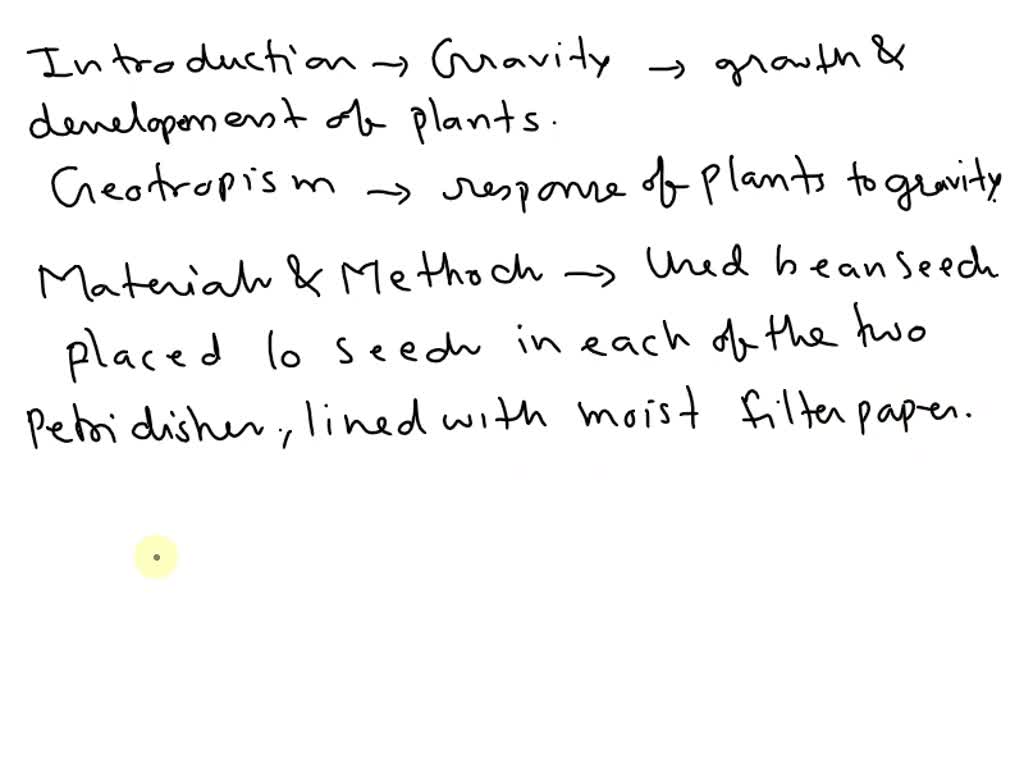 Introduction → Gravity → growth &
development of plants.
Geotropism → response of plants to gravity.
Materials & Methods → Used bean seeds
placed 10 seeds in each of the two
Petri dishes, lined with moist filter paper.